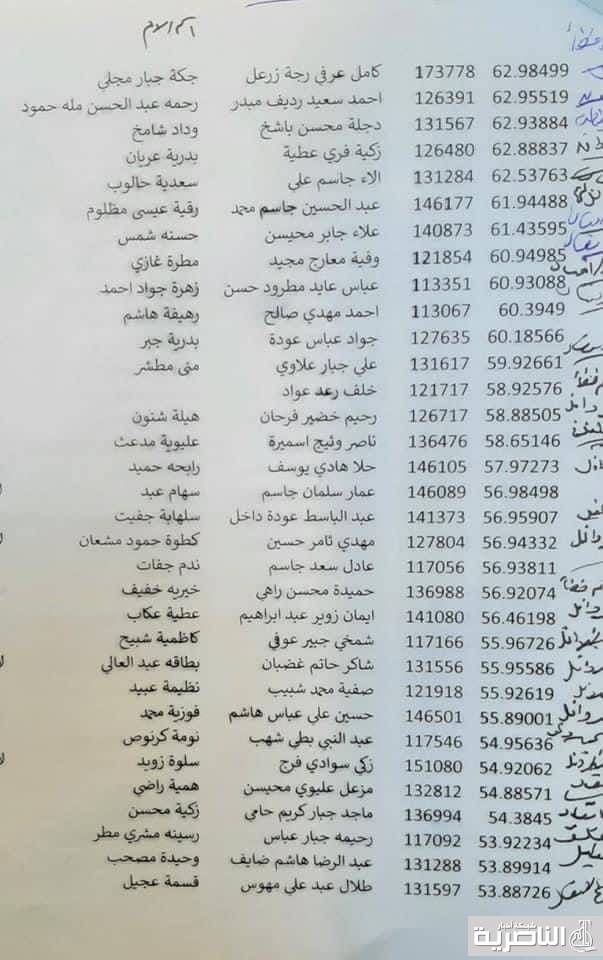 اسم الام
62.98499 173778 كامل عرفي رجة زرعل جكة جبار مجلي
62.95519 126391 احمد سعيد رديف مبدر رحمه عبد الحسن مله حمود
62.93884 131567 دجلة محسن باشخ وداد شامخ
62.88837 126480 زكية فري عطية بدرية عريان
62.53763 131284 الاء جاسم علي سعدية حالوب
61.94488 146177 عبد الحسين جاسم محمد رقية عيسى مظلوم
61.43595 140873 علاء جابر محيسن حسنه شمس
60.94985 121854 وفية معارج مجيد مطرة غازي
60.93088 113351 عباس عايد مطرود حسن زهرة جواد احمد
60.3949 113067 احمد مهدي صالح رهيفة هاشم
60.18566 127635 جواد عباس عودة بدرية جبر
59.92661 131617 علي جبار علاوي منى مطشر
58.92576 121717 خلف رعد عواد
58.88505 126717 رحيم خضير فرحان هيلة شنون
58.65146 136476 ناصر وثيج اسميرة عليوية مدعث
57.97273 146105 حلا هادي يوسف رابحه حميد
56.98498 146089 عمار سلمان جاسم سهام عبد
56.95907 141373 عبد الباسط عودة داخل سلهابة جفيت
56.94332 127804 مهدي ثامر حسين كطوة حمود مشعان
56.93811 117056 عادل سعد جاسم ندم جفات
56.92074 136988 حميدة محسن راهي خيريه خفيف
56.46198 141080 ايمان زوير عبد ابراهيم عطية عكاب
55.96726 117166 شمخي جبير عوفي كاظمية شبيح
55.95586 131556 شاكر حاتم غضبان بطاقه عبد العالي
55.92619 121918 صفية محمد شبيب نظيمة عبيد
55.89001 146501 حسين علي عباس هاشم فوزية محمد
54.95636 117546 عبد النبي بطي شهب نومة كرنوص
54.92062 151080 زكي سوادي فرج سلوة زويد
54.88571 132812 مزعل عليوي محيسن همية راضي
54.3845 136994 ماجد جبار كريم حامي زكية محسن
53.92234 117092 رحيمه جبار عباس رسينه مشري مطر
53.89914 131288 عبد الرضا هاشم ضايف وحيدة مصحب
53.88726 131597 طلال عبد علي مهوس قسمة عجيل
شبكة أخبار
الناصرية